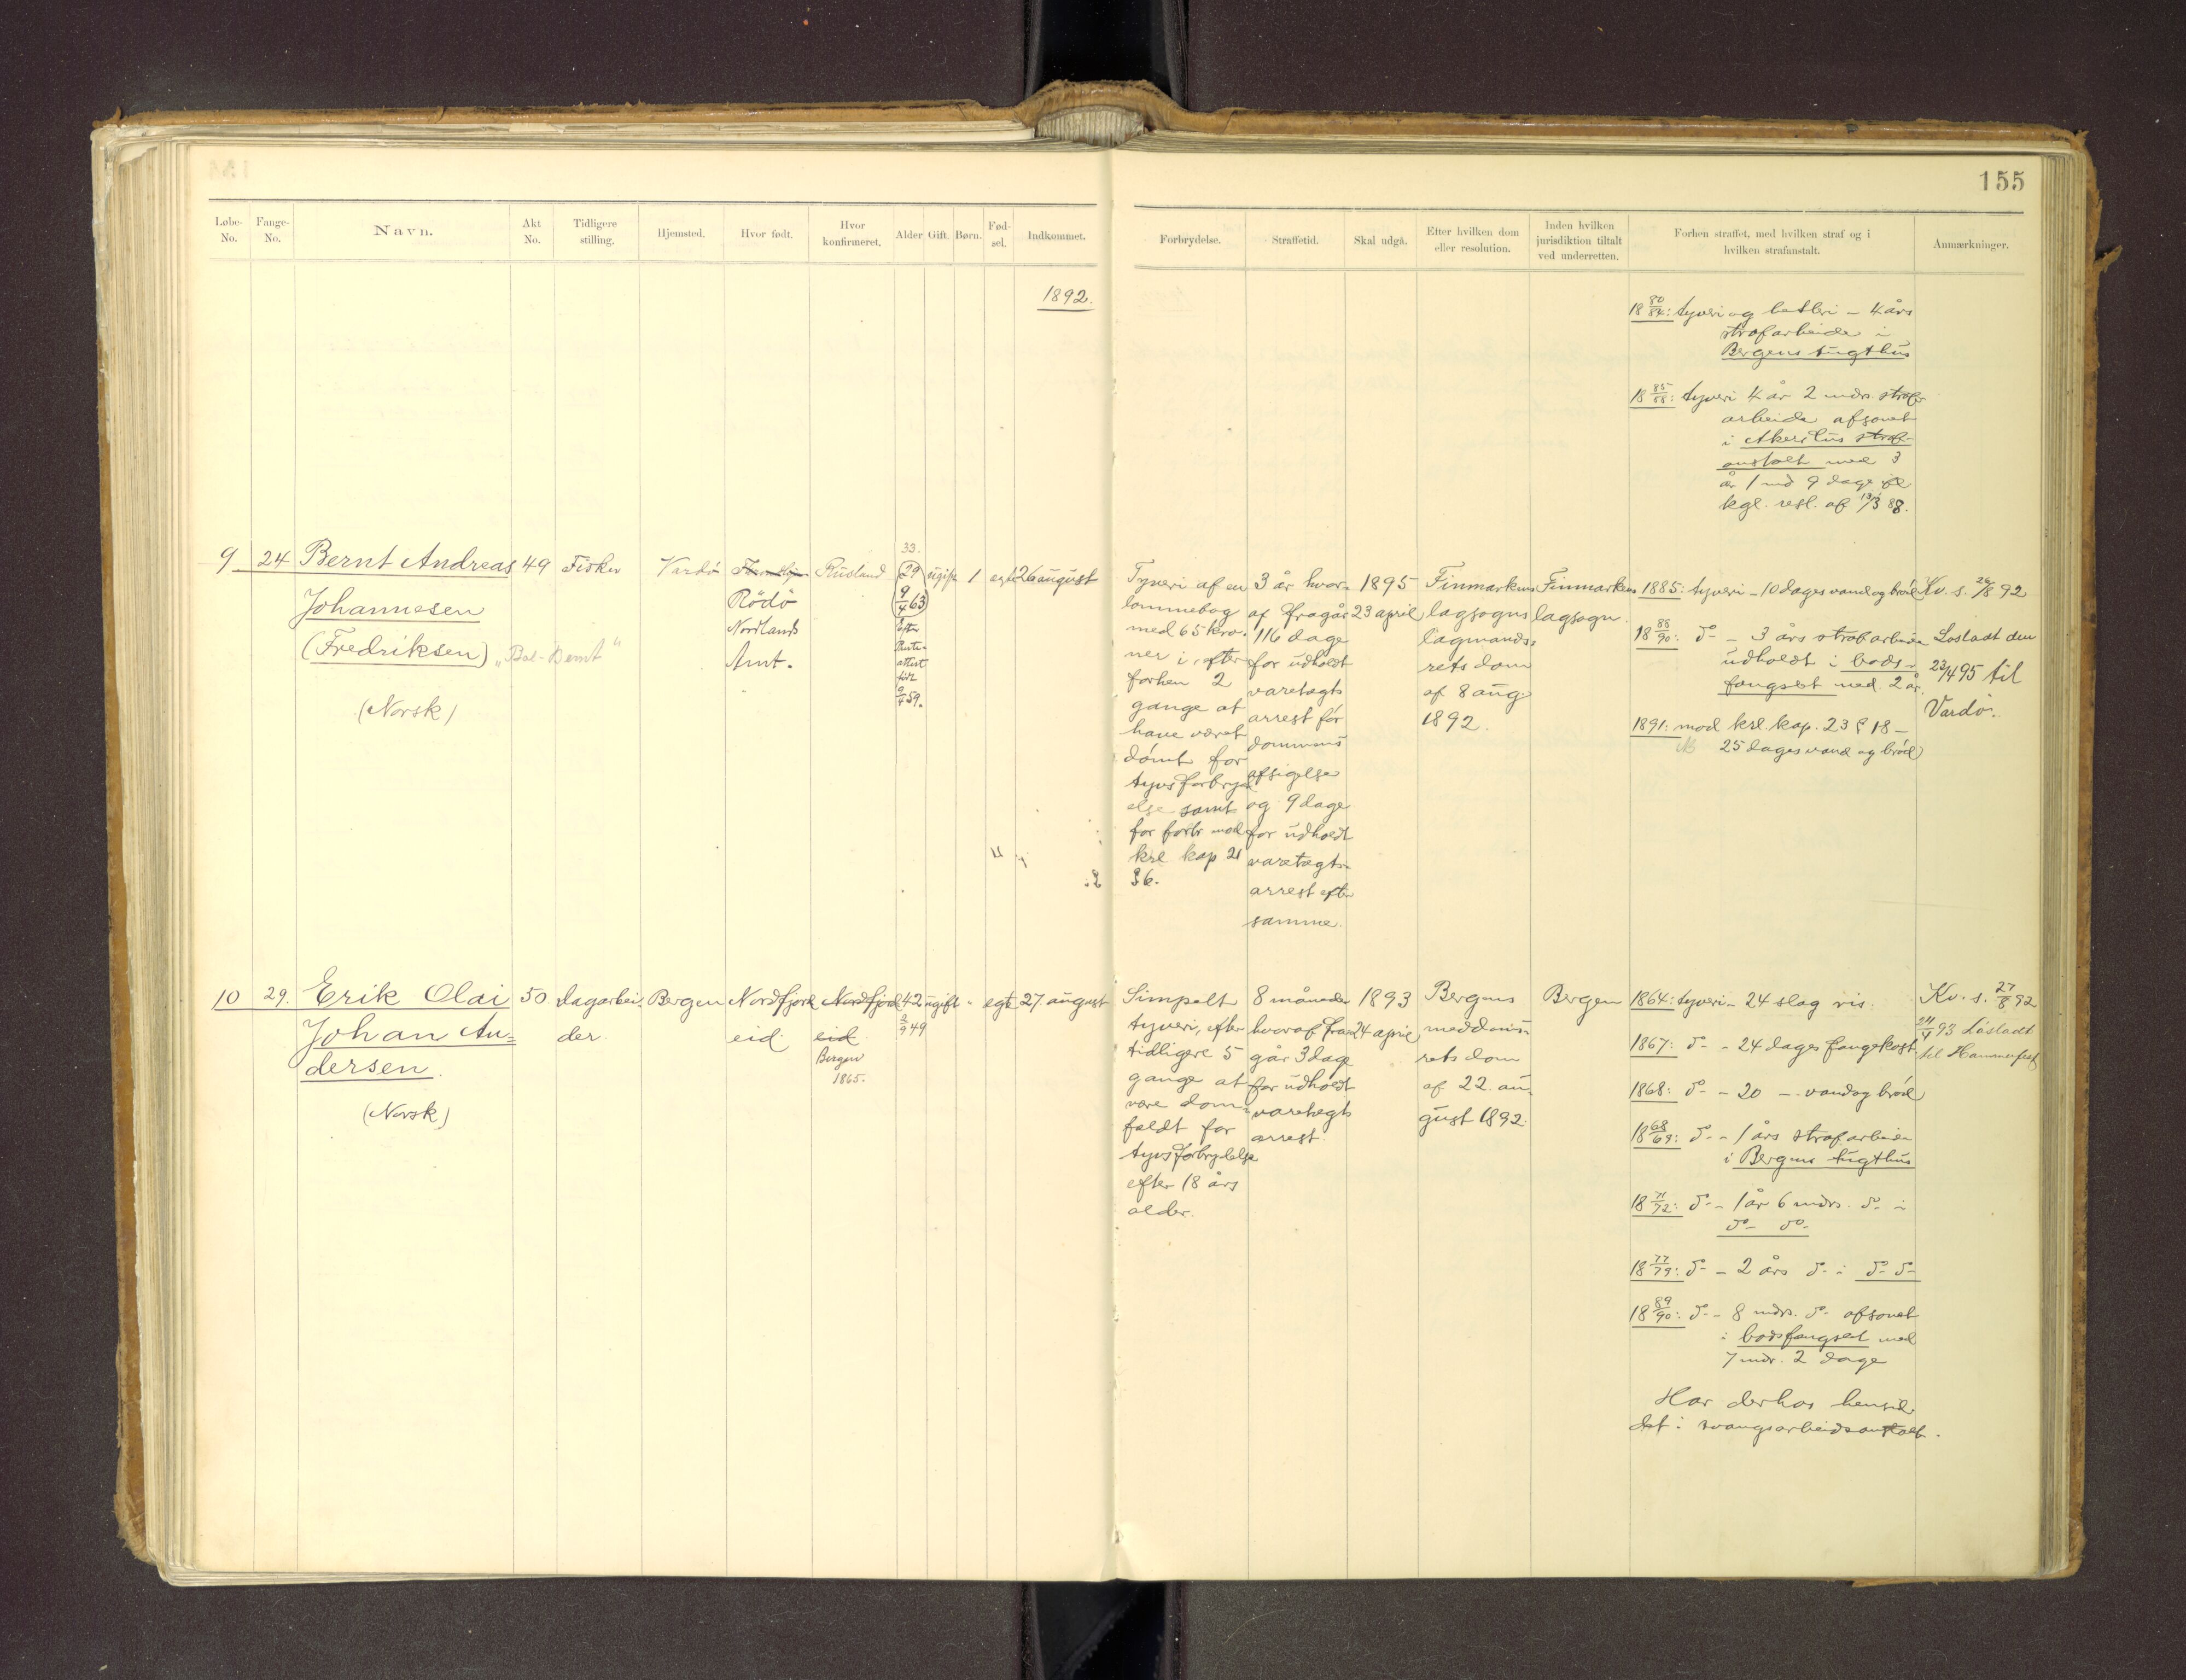 155
Løbe-No.
Fange-No.
Navn.
Akt No.
Tidligere stilling.
Hjemsted.
Hvor født.
Hvor konfirmeret.
Alder
Gift.
Børn.
Fød-sel.
Indkommet.
Forbrydelse.
Straffetid.
Skal udgå.
Efter hvilken dom eller resolution.
Inden hvilken jurisdiktion tiltalt ved underretten.
Forhen straffet, med hvilken straf og i hvilken strafanstalt.
Anmærkninger.
1892.
18 80/84: tyveri og betleri – 4 års
strafarbeide i
Bergens tugthus
18 85/88: tyveri 4 år 2 mdrs. straf-
arbeide afsonet
i Akershus straf-
anstalt med 3
år 1 md 9 dage
kgl. resl. af 13/3 88.
9
24
Bernt Andreas
Johannesen
(Fredriksen) „Bal-Bernt“
(Norsk)
49
Fisker
Vardø
Rödö
Nordlands
Amt.
Rusland
33.
(29
9/4 63)
Efter
attest
född
9/4 59.
ugift
1
egte
26 august
Tyveri af en
lommebog
med 65 kro-
ner i, efter
forhen 2
gange at
have været
dömt for
tyvsforbryd-
else samt
for forbr. mod
krl kap 21
§ 6.
3 år hvor-
af fragår
116 dage
for udholdt
varetægts
arrest før
dommens
afsigelse
og 9 dage
for udholdt
varetægts-
arrest efter
samme.
1895
23 april
Finmarkens
lagsogns
lagmands-
rets dom
af 8 aug.
1892.
Finmarkens
lagsogn.
1885: tyveri – 10 dages vand og bröd
18 88/90: do – 3 års strafarbeide
udholdt i bods-
fængslet med 2 år.
1891: mod krl. kap. 23 § 18 –
25 dages vand og bröd
Kv. s. 26/8 92
Løsladt den
23/4 95 til
Vardø.
10
29.
Erik Olai
Johan An-
dersen.
(Norsk)
50
Dagarbei-
der
Bergen
Nordfjord
eid
Nordfjord
eid
Bergen
1865.
42
2/9 49
ugift
-
egte
27. august
Simpelt
tyveri, efter
tidligere 5
gange at
være dom-
fældt for
tyvsforbrydelse
efter 18 års
alder.
8 måneder
hvoraf fra-
går 3 dage
for udholdt
varetægts
arrest.
1893
24 april
Bergens
meddoms-
rets dom
af 22. au-
gust 1892.
Bergen
1864: tyveri – 24 slag ris.
1867: do – 24 dages fangekost.
1868: do – 20 – vand og bröd
18 68/69: do – 1 års strafarbeide
i Bergens tugthus
18 71/72: do – 1 år 6 mdrs. do i
do do
18 77/79: do – 2 års do i do do
18 89/90: do – 8 mdrs. do afsonet
i bodsfængslet med
7 mdr. 2 dage
Har derhos hensid-
det i tvangsarbeidsanstalt.
Kv. s. 27/8 92
24/4 93 Løsladt
til Hammerfest